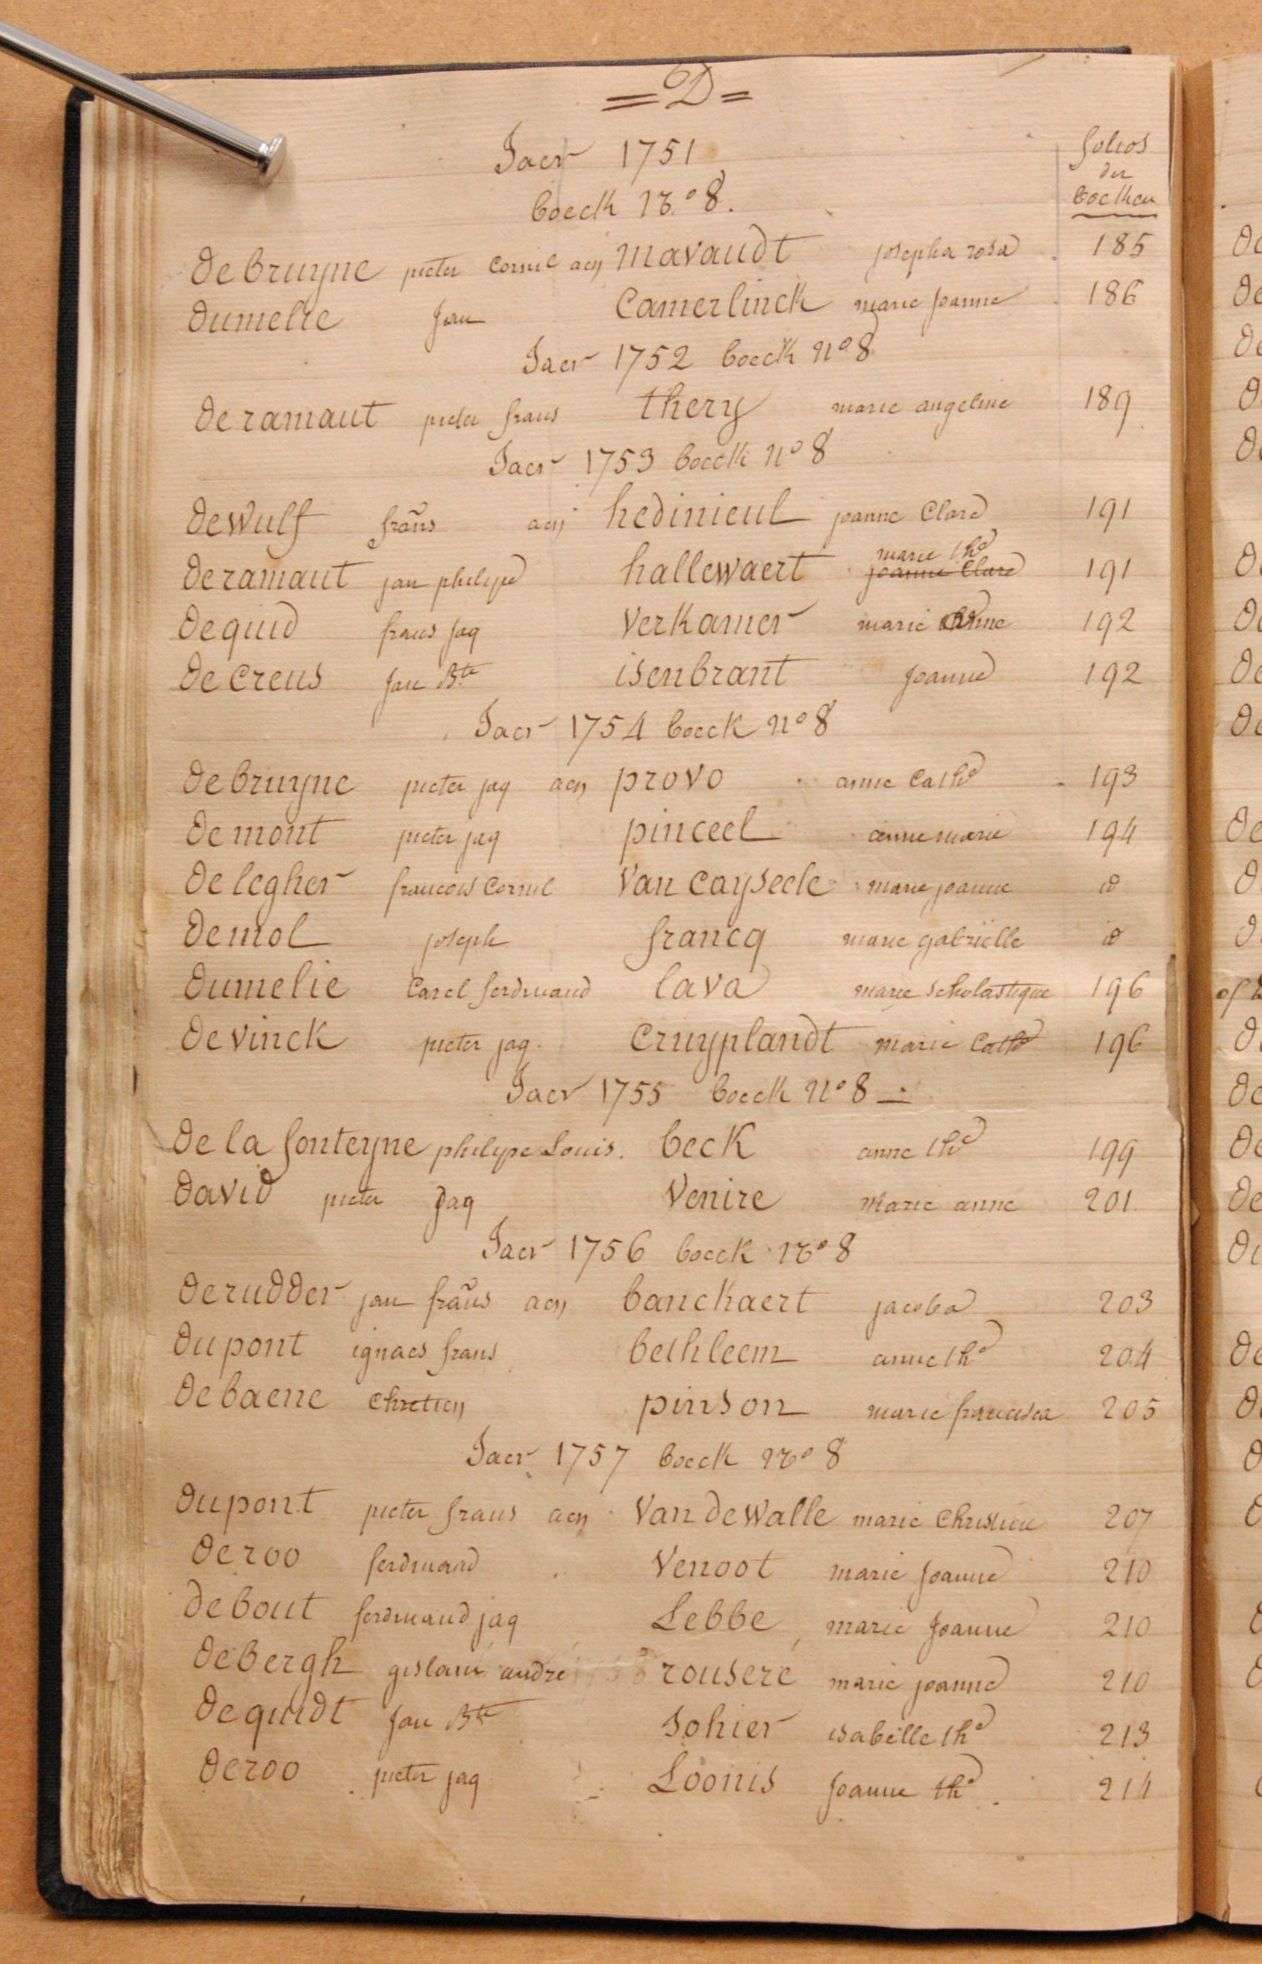 = D =
Jaer 1751
folios
der
boecken
boeck N.º 8.
de bruyne pieter Cornil aen mavaudt josepha rosa 185
dumelie Jan Camerlinck marie Joanne 186
Jaer 1752 boeck nº 8
deramaut pieter frans thery marie angeline 189
Jaer 1753 boeck nº 8
dewulf frans aen hedinieul joanne Clare 191
marie the
deramaut jan philipe hallewaert joanne Clare 191
dequid frans jaq verkamer marie anne 192
de creus Jan Bte isenbrant Joanne 192
Jaer 1754 boeck nº 8
de bruyne pieter jaq aen provo anne Cathe 193
de mont pieter jaq pinceel anne marie 194
de legher francois Cornil van caysele marie joanne id
demol joseph francq marie gabrielle id
dumelie Carel ferdinand lava marie scholastique 196
de vinck pieter jaq. cruyplandt marie Cathe 196
Jaer 1755 boeck nº 8
de la fonteyne philipe Louis. beck anne the 199
david pieter Jaq venire Marie anne 201
Jaer 1756 boeck nº 8
derudder jan frans aen banckaert jacoba 203
dupont ignaes frans bethleem anne the 204
debaene Chretien pinson marie francisca 205
Jaer 1757 boeck nº 8
dupont pieter frans aen van dewalle marie Christine 207
deroo ferdinand venoot marie Joanne 210
debout ferdinand jaq Lebbe marie Joanne 210
debergh gislain andré rouseré marie joanne 210
dequidt Jan Bte sohier isabelle the 213
deroo pieter jaq Loonis Joanne the. 214